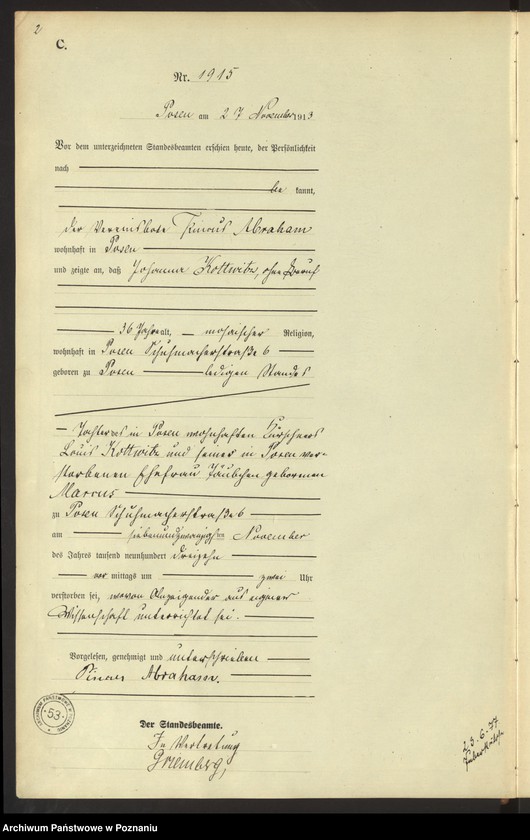 2
C.
Nr. 1915
Posen am 27 November 1913
Vor dem unterzeichneten Standesbeamten erschien heute, der Persönlichkeit
nach
be kannt,
der Vereinsbote Pincus Abraham
wohnhaft in Posen
und zeigte an, daß Johanna Kottwitz, ohne Beruf
36 Jahre alt, mosaischer Religion,
wohnhaft in Posen Schuhmacherstraße 6
geboren zu Posen ledigen Standes
Tochter des in Posen wohnhaften Kürschners
Louis Kottwitz und seiner in Posen ver-
storbenen Ehefrau Täubchen geborenen
Marcus
zu Posen Schuhmacherstraße 6
am siebenundzwanzigsten November
des Jahres tausend neunhundert dreizehn
vor mittags um zwei Uhr
verstorben sei, wovon Anzeigender aus eigener
Wissenschaft unterrichtet sei.
Vorgelesen, genehmigt und unterschrieben
Pincus Abraham.
Der Standesbeamte.
In Vertretung
ARCHIWUM PAŃSTWOWE W POZNANIU
53
Archiwum Państwowe w Poznaniu